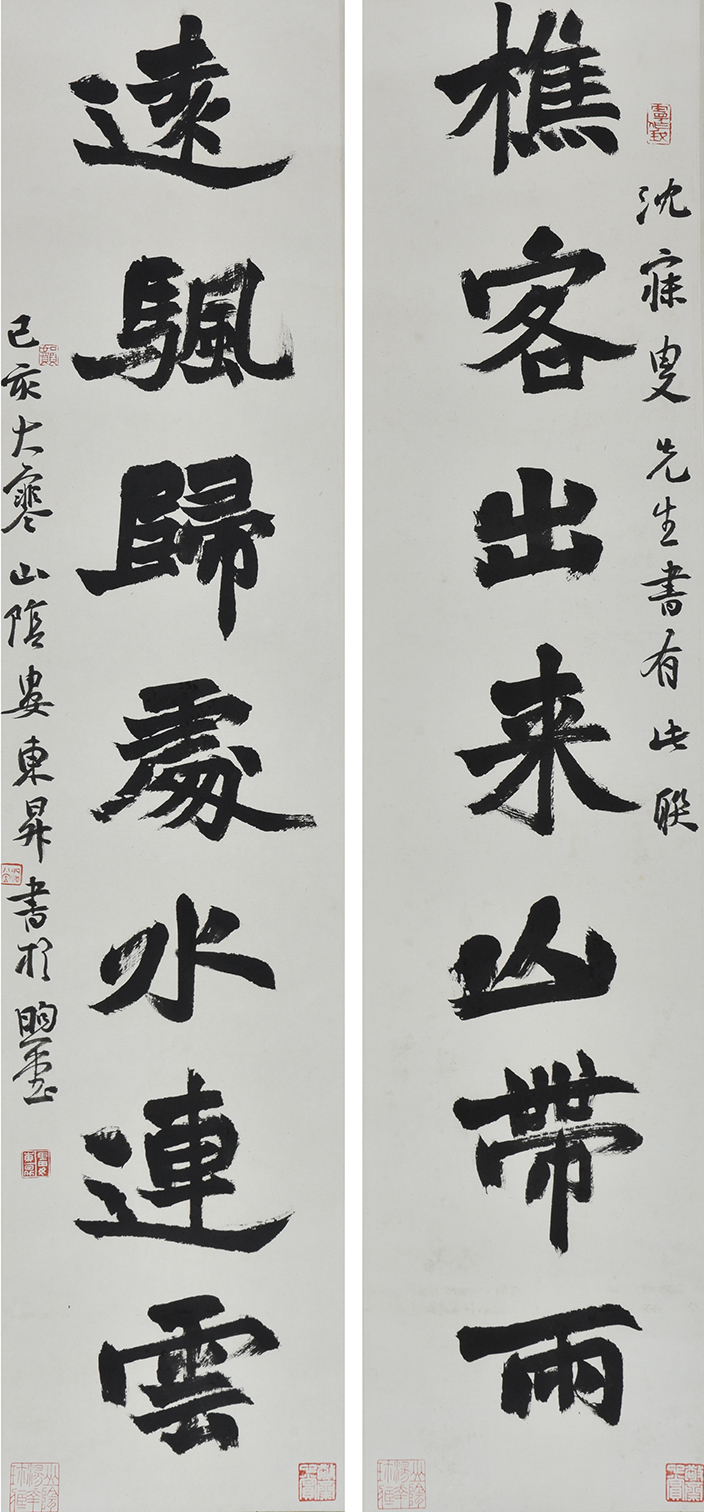 沈寐叟先生書有此聯
樵客出来山帶雨
遠颿歸處水連雲
己亥大寒山陰婁東昇書於